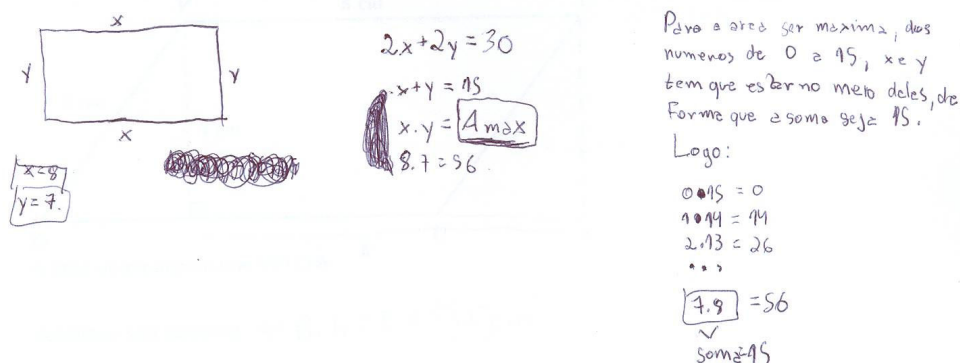 x
y
y
x
x=8
y=7.
2x+2y=30
x+y=15
x.y=Amax
8.7=56
Para a area ser maxima, dos
numeros de 0 a 15, x e y
tem que estar no meio deles, de
forma que a soma seja 15.
Logo:
0.15 = 0
1.14 = 14
2.13 = 26
...
7.8 =56
soma=15